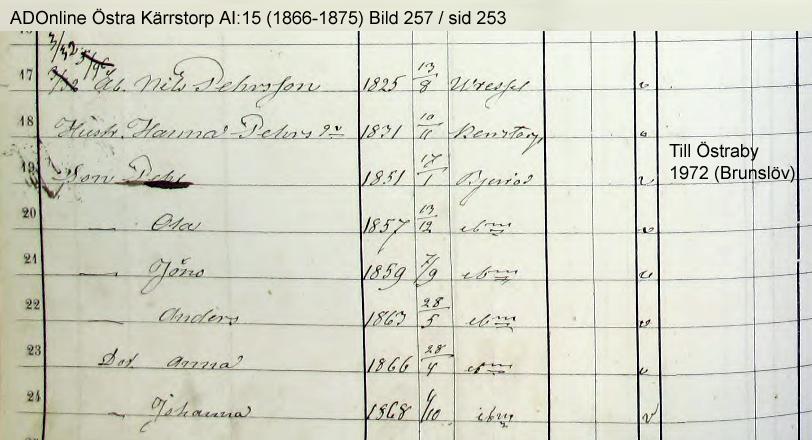 ADOnline Östra Kärrstorp AI:15 (1866-1875) Bild 257 / sid 253
17 Åb. Nils Pehrsson 1825 13/8
18 Hustr. Hanna Pehrs dr 1831 10/11
19 Son Pehr 1851 17/1
20 — Ola 1857 13/12 ibm
21 — Jöns 1859 7/9 ibm
22 — Anders 1863 28/5 ibm
23 Dot. Anna 1866 28/4 ibm
24 — Johanna 1868 /10 ibm
Till Östraby
1972 (Brunslöv)